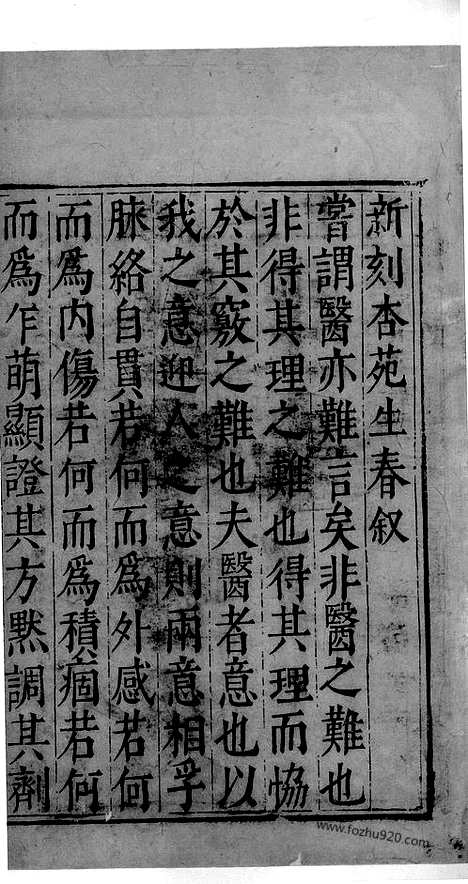 新刻杏苑生春叙
嘗謂醫亦難言矣非醫之難也
非得其理之難也得其理而恊
於其竅之難也夫醫者意也以
我之意迎人之意則兩意相孚
脉絡自貫若何而為外感若何
而為内傷若何而為積痼若何
而為乍萌顯證其方黙調其劑
www.fozhu920.com